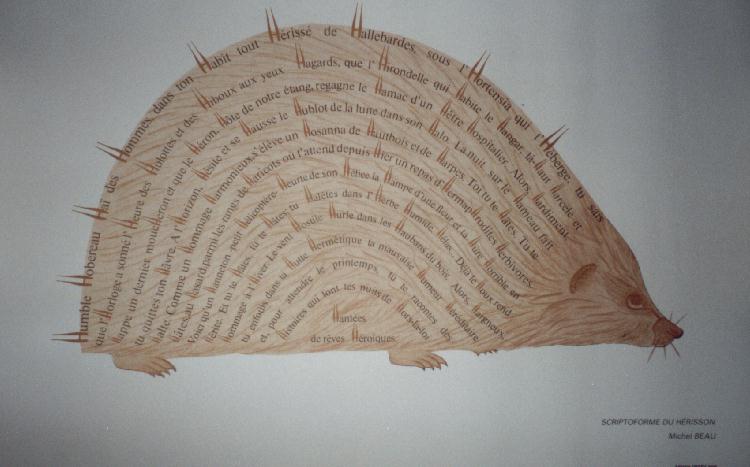 Humble Hobereau Haï des Hommes, dans ton Habit tout Hérissé de Hallebardes, sous l'Hortensia qui t'éberge, tu sais
que l'Horloge a sonné l'Heure des Hulottes et des Hiboux aux yeux Hagards, que l'Hirondelle qui Habite le Hangar, là-Haut, Harcèle et
Happe un dernier moucheron et que le Héron, Hôte de notre étang, regagne le Hamac d'un Hêtre Hospitalier. Alors, Hardiment
tu quittes ton Havre. A l'Horizon, Hésite et se Hausse le Hublot de la lune dans son Halo. La nuit, sur le Hameau fait
Halte. Comme un Hommage Harmonieux, s'élève un Hosanna de Hautbois et de Harpes. Toi tu te Hâtes. Tu te
Hâtes au Hasard parmi les rangs de Haricots où t'attend depuis Hier un repas d'Hermaphrodites Herbivores.
Voici qu'un Hanneton petit Hélicoptère Heurte de son Hélice la Hampe d'une fleur et ta Hure Horrible en
tente. Et tu te Hâtes, tu te Hâtes, tu Halètes dans l'Herbe Humide. Hélas! Déjà le Houx rend
Hommage à l'Hiver. Le vent Hostile Hurle dans les Haubans du bois. Alors, Hargneux,
tu enfouis dans ta Hutte Hermétique ta mauvaise Humeur Héréditaire
et, pour attendre le printemps, tu te racontes des
Histoires qui font tes nuits de Hors-la-loi
Hantées
de rêves Héroïques.
SCRIPTOFORME DU HÉRISSON
Michel BEAU